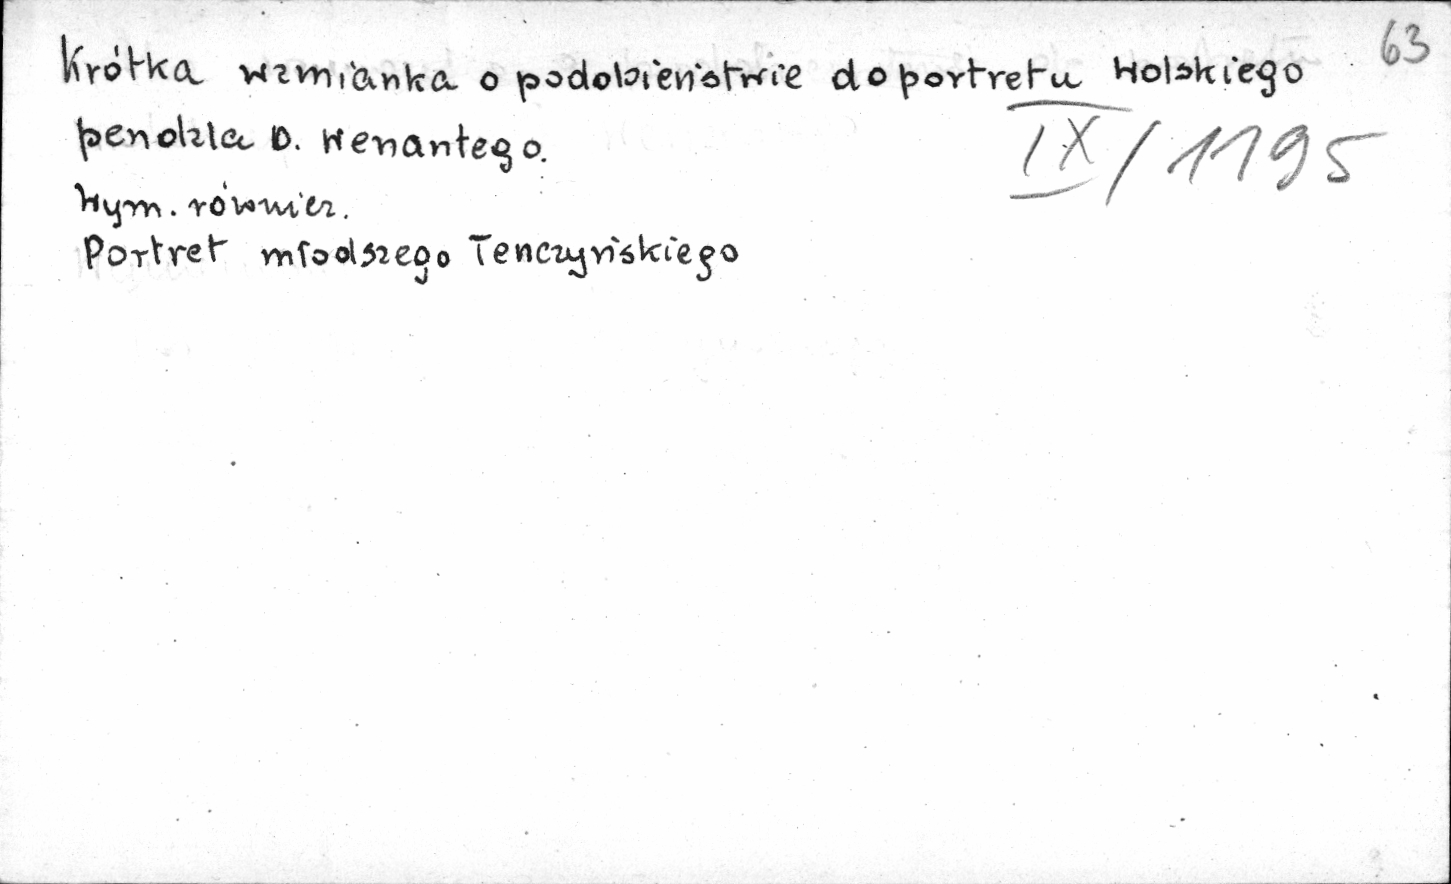 63
Krótka wzmianka o podobieństwie do portretu Wolskiego
pendzla O. Wenantego.
IX/1195
Wym. również.
Portret młodszego Tenczyńskiego